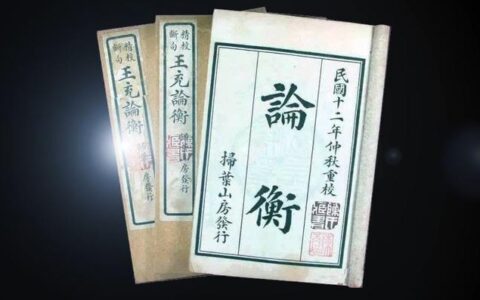 民國十二年仲秋重校
論衡
掃葉山房發行
精校
斷句
王充論衡
房發行
精校
斷句
王充論衡